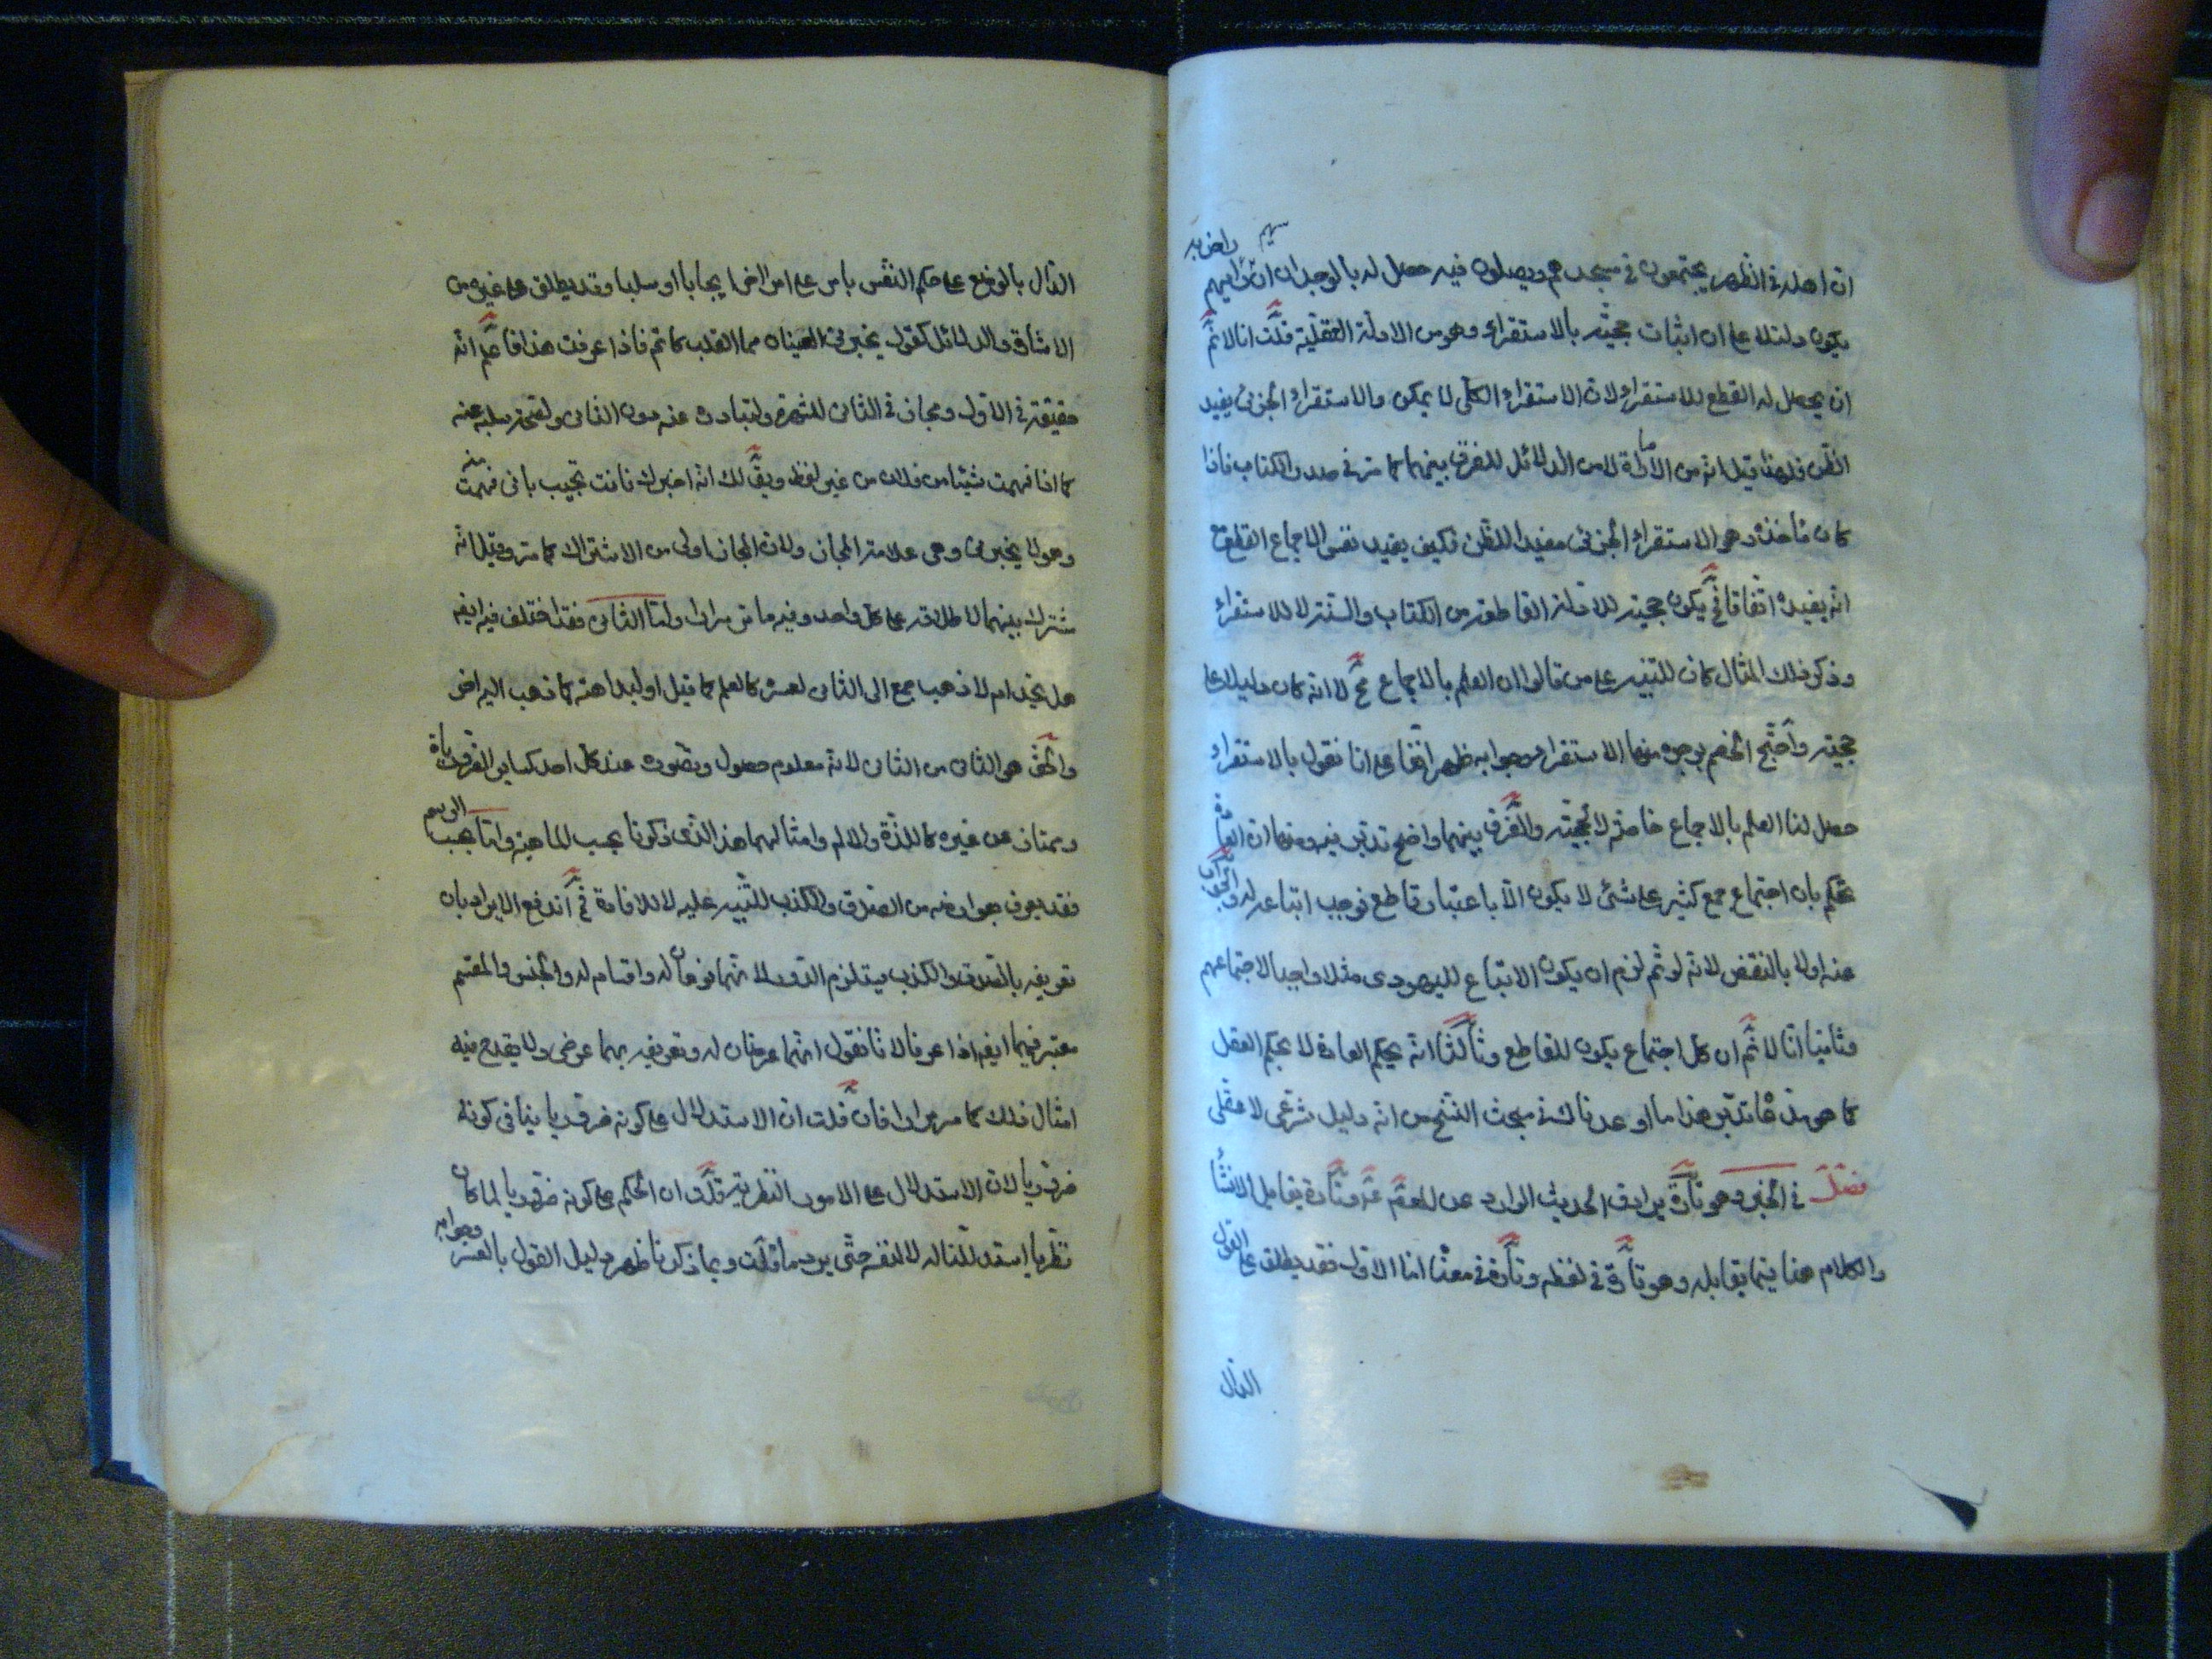 ان اهله في الظهر يجتمعون في مسجدهم ويصلون فيه حصل له بالوجدان ان رئيسهم راض به
يكون دليلا على ان اثبات حجيته بالاستقراء وهو من الادلة العقلية قلت انا لا نم
ان يحصل له القطع للاستقراء لان الاستقراء الكلى لا يمكن والاستقراء الجزئى يفيد
الظن فلهذا قيل انه من الامارة لا من الدلائل للفرق بينهما كما مر في صدر الكتاب فاذا
كان مأخذه وهو الاستقراء الجزئى مفيدا للظن فكيف يفيد نفس الاجماع القطع مع
انه يفيده اتفاقا فح يكون حجيته للادلة القاطعة من الكتاب والسنة لا للاستقراء
وذكر ذلك المثال كان للتنبيه على من قالوا ان العلم بالاجماع مح لا انه كان دليلا على
حجيته واحتج الخصم بوجوه منها الاستقراء وجوابه ظهر انفا على انا نقول بالاستقراء
حصل لنا العلم بالاجماع خاصة لا بحجيته والفرق بينهما واضح تدبر فيه ومنها ان العادة
تحكم بان اجتماع جمع كثير على شئ لا يكون الا باعتبار قاطع فوجب اتباعه له والجواب
عنه اولا بالنقض لانه لو تم لزم ان يكون الاتباع لليهودى مثلا واجبا لاجتماعهم
وثانيا انا لا نم ان كل اجتماع يكون للقاطع وثالثا انه بحكم العادة لا بحكم العقل
كما هو مدعا تدبر هذا ما اوعدناك في مبحث النسخ من انه دليل شرعى لا عقلى
فصل في الخبر وهو تارة يرادف الحديث الوارد عن المعصوم وتارة يقابل الانشاء
والكلام هنا فيما يقابله وهو تارة في لفظه وتارة في معناه اما الاول فقد يطلق على القول
الدال
الدال بالوضع على حكم النفس بامر على امر اخر ايجابا او سلبا وقد يطلق على غيره من
الاشارة والدلائل كقول يخبرنى العينان مما القلب كاتم فاذا عرفت هذا فاعلم انه
حقيقة في الاول ومجاز في الثانى للشهرة ولتبادره عنه دون الثانى ولصحة سلبه عنه
كما اذا فهمت شيئا من فلان من غير لفظ ويق لك انه اخبرك فانت تجيب بانى فهمت منه
وهو لا يخبرنى وهى علامة المجاز ولان المجاز اولى من الاشتراك كما مر وقيل انه
مشترك بينهما لاطلاقه على كل واحد وفيه ما مر مرارا واما الثانى فقد اختلف فيه ايضه
هل يحد ام لا ذهب جمع الى الثانى لعسره كالعلم كما قيل او لبداهته كما ذهب اليه اخر
والحق هو الثانى من الثانى لانه معلوم حصوله وتصوره عند كل احد كساير الضروريات
ويمتاز عن غيره كاللذة والالم وامثالهما هذا الذى ذكرنا بحسب الماهية واما بحسب الرسم
فقد يعرف بعوارضه من الصدق والكذب للتنبيه عليه لا للافادة فح اندفع الايراد بان
تعريفه بالصدق والكذب مستلزم الدور لانهما نوعان له واقسام له والجنس والمقسم
معتبر فيهما ايضه اذا عرفا لانا نقول انهما عرضان له وتعريفه بهما عرضى ولا يقدح فيه
امثال ذلك كما مر مرارا فان قلت ان الاستدلال على كونه ضروريا ينافى كونه
ضروريا لان الاستدلال على الامور النظرية قلت ان الحكم على كونه ضروريا لما كان
نظريا استدللنا له لا لنفسه حتى يرد ما قلت وبما ذكرنا ظهر دليل القول بالعسر وجوابه